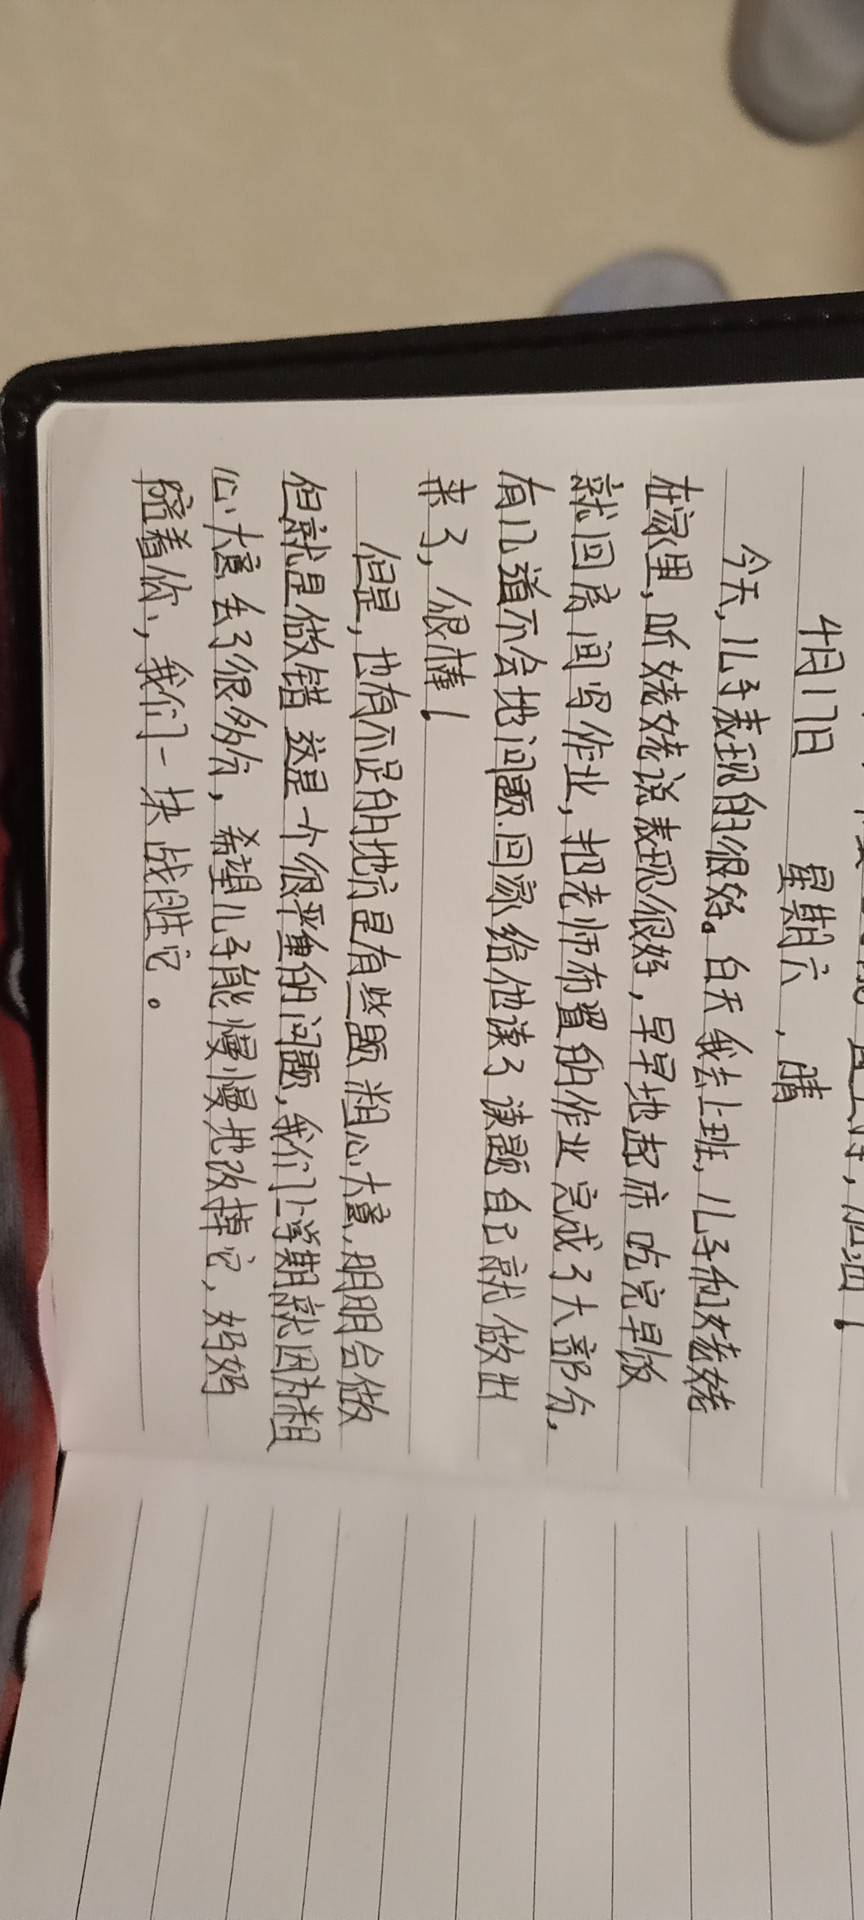 4月17日 星期六，晴
今天，儿子表现的很好。白天我去上班，儿子和姥姥
在家里，听姥姥说表现很好，早早地起床吃完早饭
就回房间写作业，把老师布置的作业完成了大部分，
有几道不会地问题.回家给他读了读题自己就做出
来了，很棒！
但是，也有不足的地方是有些题粗心大意，明明会做
但就是做错 这是个很严重的问题，我们上学期就因为粗
心大意丢了很多分，希望儿子能慢慢地改掉它，妈妈
陪着你，我们一块战胜它。